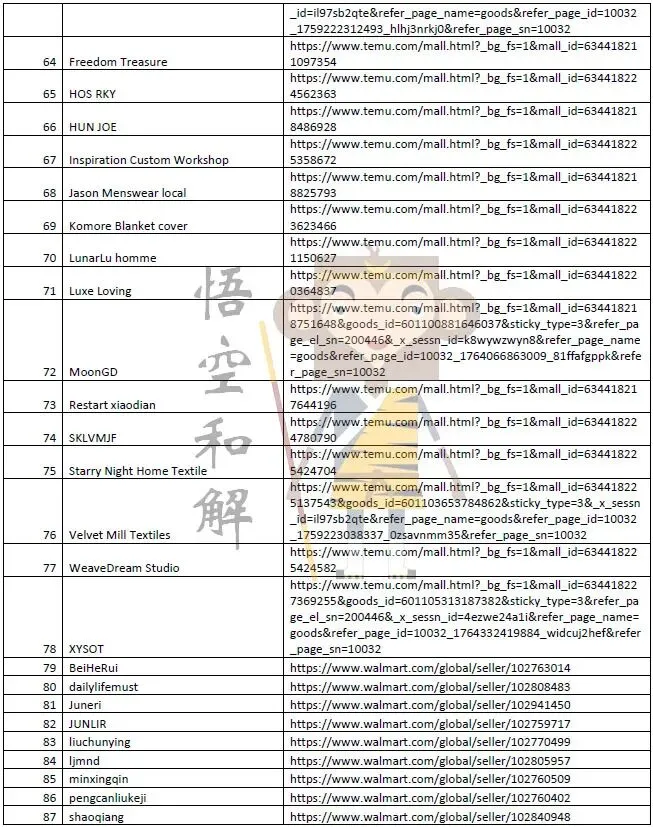 _id=il97sb2qte&refer_page_name=goods&refer_page_id=10032
_1759222312493_hlhj3nrkj0&refer_page_sn=10032
64 Freedom Treasure https://www.temu.com/mall.html?_bg_fs=1&mall_id=63441821
1097354
65 HOS RKY https://www.temu.com/mall.html?_bg_fs=1&mall_id=63441822
4562363
66 HUN JOE https://www.temu.com/mall.html?_bg_fs=1&mall_id=63441821
8486928
67 Inspiration Custom Workshop https://www.temu.com/mall.html?_bg_fs=1&mall_id=63441822
5358672
68 Jason Menswear local https://www.temu.com/mall.html?_bg_fs=1&mall_id=63441821
8825793
69 Komore Blanket cover https://www.temu.com/mall.html?_bg_fs=1&mall_id=63441822
3623466
70 LunarLu homme https://www.temu.com/mall.html?_bg_fs=1&mall_id=63441822
1150627
71 Luxe Loving https://www.temu.com/mall.html?_bg_fs=1&mall_id=63441822
0364837
72 MoonGD https://www.temu.com/mall.html?_bg_fs=1&mall_id=63441821
8751648&goods_id=601100881646037&sticky_type=3&refer_pa
ge_el_sn=200446&_x_sessn_id=k8wywzwyn8&refer_page_name
=goods&refer_page_id=10032_1764066863009_81ffafgppk&refe
r_page_sn=10032
73 Restart xiaodian https://www.temu.com/mall.html?_bg_fs=1&mall_id=63441821
7644196
74 SKLVMJF https://www.temu.com/mall.html?_bg_fs=1&mall_id=63441822
4780790
75 Starry Night Home Textile https://www.temu.com/mall.html?_bg_fs=1&mall_id=63441822
5424704
76 Velvet Mill Textiles https://www.temu.com/mall.html?_bg_fs=1&mall_id=63441822
5137543&goods_id=601103653784862&sticky_type=3&_x_sessn
_id=il97sb2qte&refer_page_name=goods&refer_page_id=10032
_1759223038337_0zsavnmm35&refer_page_sn=10032
77 WeaveDream Studio https://www.temu.com/mall.html?_bg_fs=1&mall_id=63441822
5424582
78 XYSOT https://www.temu.com/mall.html?_bg_fs=1&mall_id=63441822
7369255&goods_id=601105313187382&sticky_type=3&refer_pa
ge_el_sn=200446&_x_sessn_id=4ezwe24a1i&refer_page_name=
goods&refer_page_id=10032_1764332419884_widcuj2hef&refer
_page_sn=10032
79 BeiHeRui https://www.walmart.com/global/seller/102763014
80 dailylifemust https://www.walmart.com/global/seller/102808483
81 Juneri https://www.walmart.com/global/seller/102941450
82 JUNLIR https://www.walmart.com/global/seller/102759717
83 liuchunying https://www.walmart.com/global/seller/102770499
84 ljmnd https://www.walmart.com/global/seller/102805957
85 minxingqin https://www.walmart.com/global/seller/102760509
86 pengcanliukeji https://www.walmart.com/global/seller/102760402
87 shaoqiang https://www.walmart.com/global/seller/102840948
悟空和解